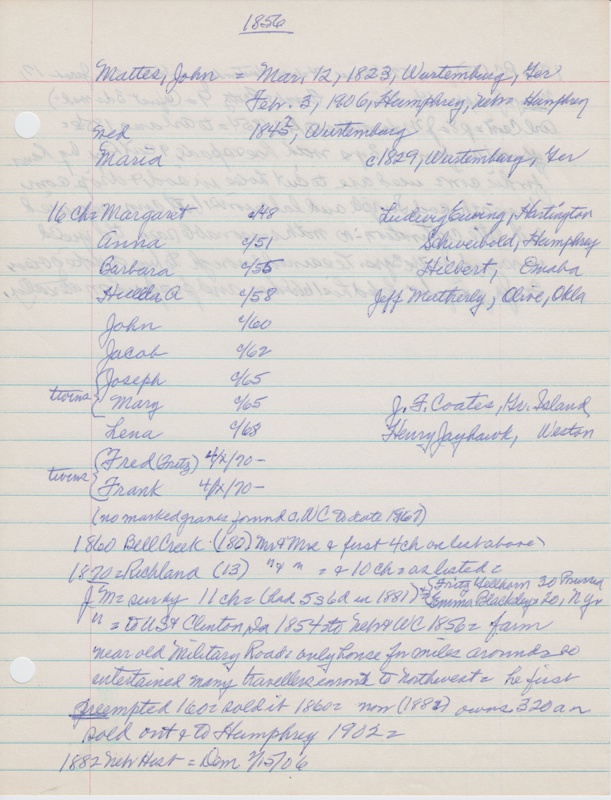 1856
Mattes, John = Mar, 12, 1823, Wurtemburg, Ger
Feb. 3, 1906, Humphrey, Nebr Humphrey
Wed 1845, Wurtemburg
Maria c1829, Wurtemburg, Ger
16 Ch = Margaret c/48 Ludwig Ewing, Hartington
Anna c/51 Schweibold, Humphrey
Barbara c/55 Hilbert, Omaha
Hulda A c/58 Jeff Matherly, Olive, Okla
John c/60
Jacob c/62
twins { Joseph c/65
Mary c/65 J. F. Coates, Gr. Island
Lena c/68 Henry Jayhawk, Weston
twins { Fred (Fritz) 4/2/70 -
Frank 4/2/70 -
(no marked graves found c. WC to date 1967)
1860 Bell Creek (182) Mr & Mrs & first 4 ch on list above
1870 = Richland (13) " & " = & 10 ch = as listed =
J M = surv by 11 ch = (had 5 36d in 1881) = { Fritz Wellham 30 Prussia
Emma Blackley = 20, N Yr
" = to US & Clinton, Ia 1854 to Neb & WC 1856 = farm
near old Military Road = only house for miles around = so
entertained many travellers enroute to northwest = he first
preempted 160 = sold it 1860 = now (1882) owns 320 a =
sold out & to Humphrey 1902 =
1882 Neb Hist = Dem 2/15/06